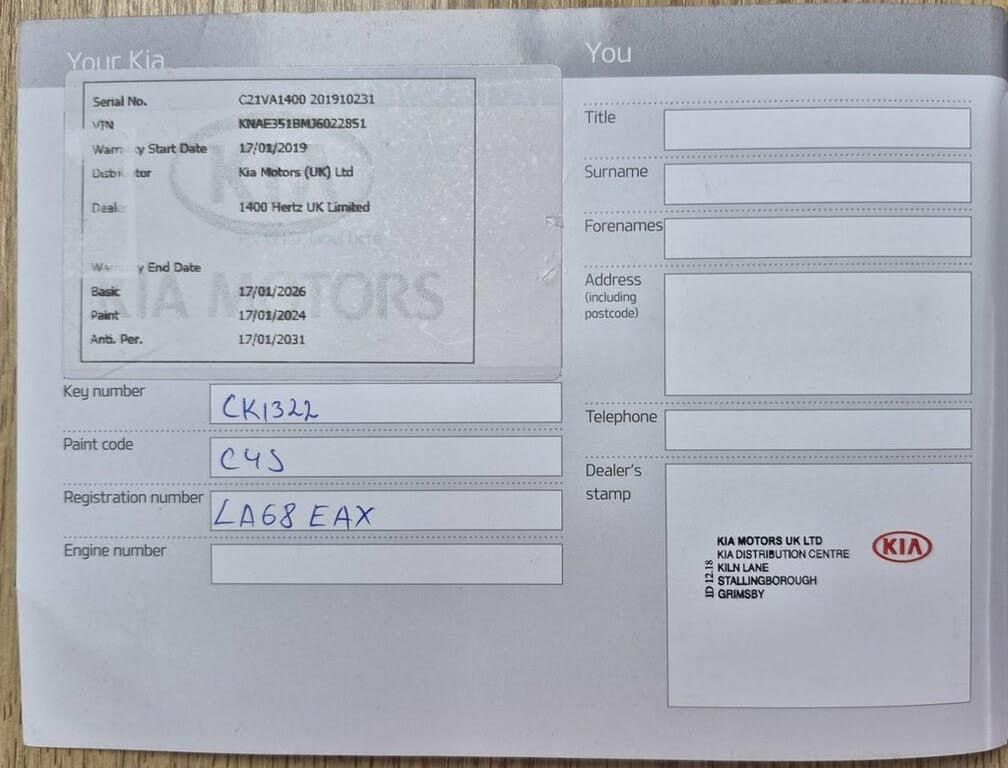 Your Kia
Serial No. C21VA1400 201910231
VIN KNAE351BMJ6022851
Warranty Start Date 17/01/2019
Distributor Kia Motors (UK) Ltd
Dealer 1400 Hertz UK Limited
Warranty End Date
Basic 17/01/2026
Paint 17/01/2024
Anti. Per. 17/01/2031
KIA
KIA MOTORS
Key number CK1322
Paint code C4S
Registration number LA68 EAX
Engine number
You
Title
Surname
Forenames
Address
(including
postcode)
Telephone
Dealer's
stamp
ID 12.18
KIA MOTORS UK LTD
KIA DISTRIBUTION CENTRE
KILN LANE
STALLINGBOROUGH
GRIMSBY
KIA